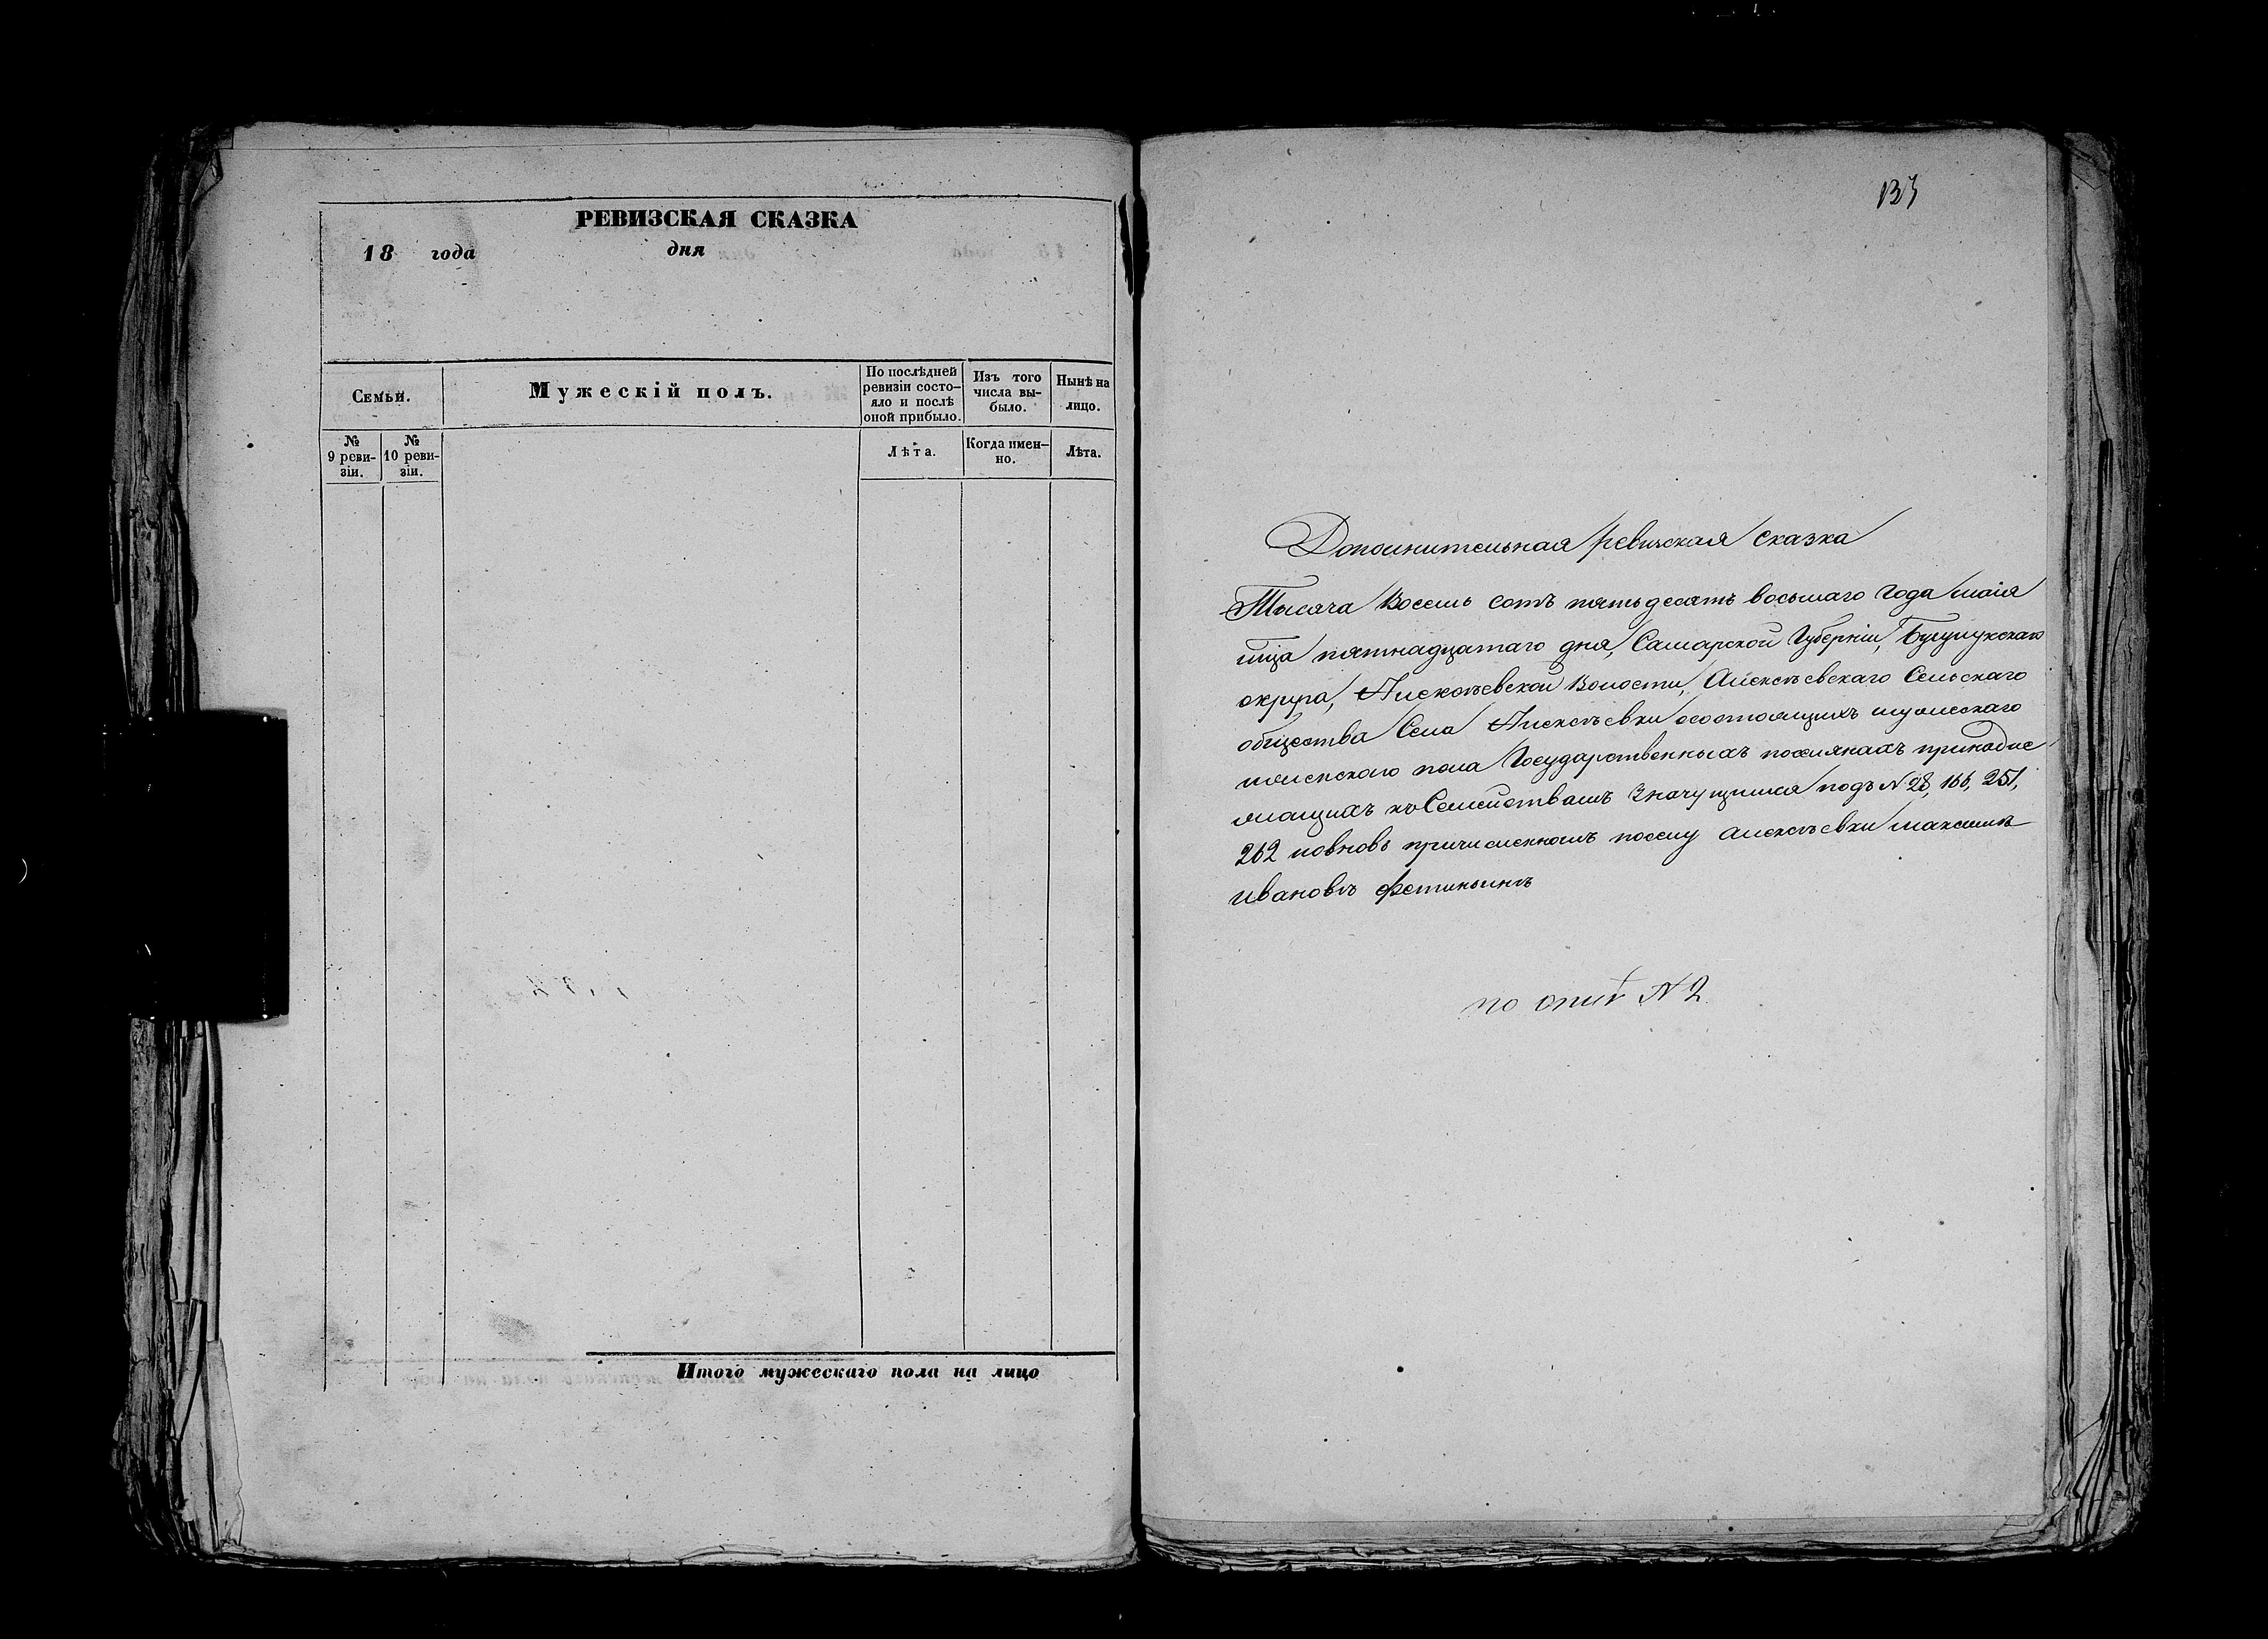 РЕВИЗСКАЯ СКАЗКА
18 года дня
Семьи.
Мужескій полъ.
По послѣдней ревизіи состо-
яло и послѣ
оной прибыло.
Изъ того
числа вы-
было.
Нынѣ на
лицо.
№
9 реви-
зіи.
№
10 реви-
зіи.
Лѣта.
Когда имен-
но.
Лѣта.
Итого мужескаго пола на лицо
Дополнительная ревизская сказка
Тысяча Восемь сотъ пятьдесятъ восьмаго года маія
мца пятнадцатаго дня, Самарской Губерніи, Бугурусланскаго
округа, Алексѣевской Волости, Алексѣевскаго Сельскаго
общества Села Алексѣевки осостоящихъ мужескаго
женскаго пола Государственныхъ поселянахъ принадле
жащихъ къ Семействамъ Значущимся подъ № 28, 166, 251,
262 ивновь причисленномъ ксеlу Алексѣевки максимѣ
ивановѣ Фетиньинѣ
по описи № 2